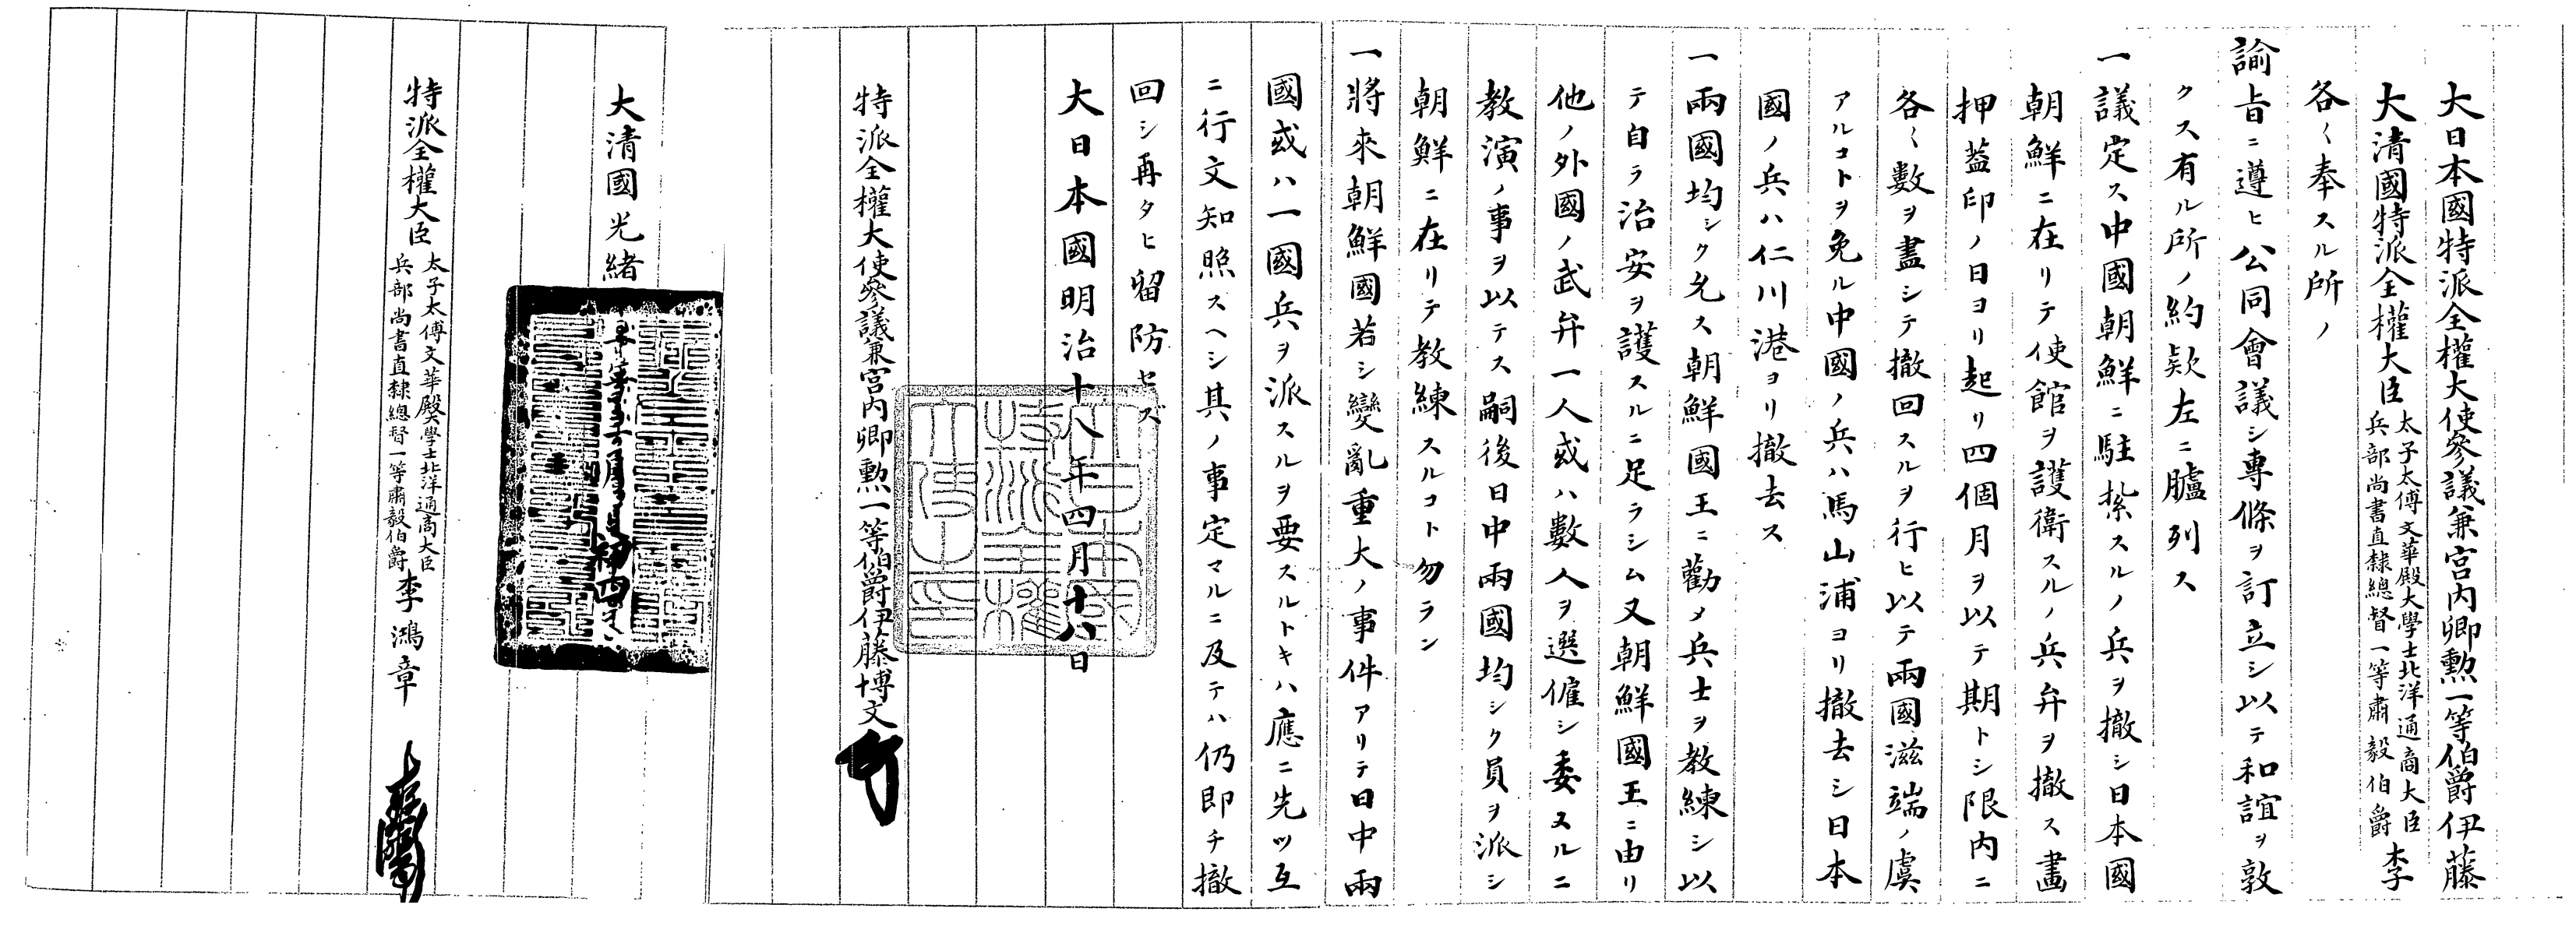 大日本國特派全權大使參議兼宮内卿勲一等伯爵伊藤
大清國特派全權大臣太子太傅文華殿大學士北洋通商大臣兵部尚書直隸總督一等肅毅伯爵李
各〻奉スル所ノ
諭旨ニ遵ヒ公同會議シ專條ヲ訂立シ以テ和誼ヲ敦
クス有ル所ノ約款左ニ臚列ス
一議定ス中國朝鮮ニ駐紮スルノ兵ヲ撤シ日本國
朝鮮ニ在リテ使館ヲ護衛スルノ兵弁ヲ撤ス畫
押蓋印ノ日ヨリ起リ四個月ヲ以テ期トシ限内ニ
各〻數ヲ盡シテ撤回スルヲ行ヒ以テ兩國滋端ノ虞
アルコトヲ免ル中國ノ兵ハ馬山浦ヨリ撤去シ日本
國ノ兵ハ仁川港ヨリ撤去ス
一兩國均シク允ス朝鮮國王ニ勸メ兵士ヲ教練シ以
テ自ラ治安ヲ護スルニ足ラシム又朝鮮國王ニ由リ
他ノ外國ノ武弁一人或ハ數人ヲ選僱シ委ヌルニ
教演ノ事ヲ以テス嗣後日中兩國均シク員ヲ派シ
朝鮮ニ在リテ教練スルコト勿ラン
一將來朝鮮國若シ變亂重大ノ事件アリテ日中兩
國或ハ一國兵ヲ派スルヲ要スルトキハ應ニ先ツ互
ニ行文知照スヘシ其ノ事定マルニ及テハ仍即チ撤
回シ再タヒ留防セズ
大日本國明治十八年四月十八日
特派全權大使參議兼宮内卿勲一等伯爵伊藤博文
大日本國特派全權大使之印
大清國光緒
特派全權大臣太子太傅文華殿大學士北洋通商大臣兵部尚書直隸總督一等肅毅伯爵李鴻章